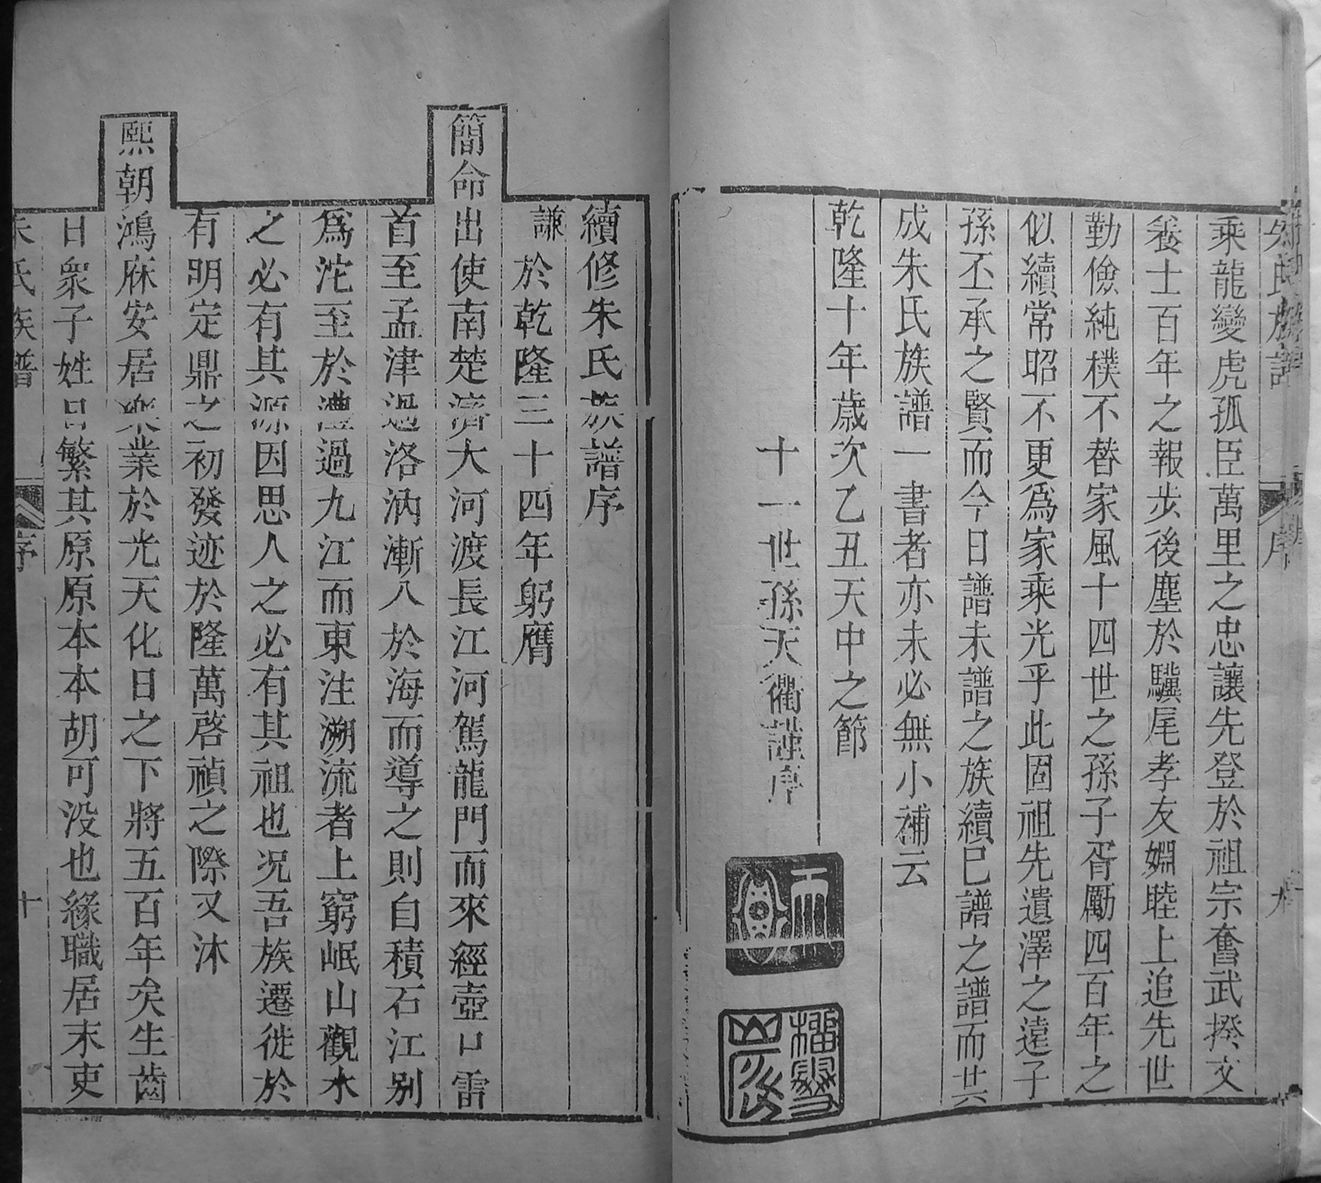 朱氏族譜
序
九
乘龍變虎孤臣萬里之忠讓先登於祖宗奮武揆文
養士百年之報步後塵於驥尾孝友婣睦上追先世
勤儉純樸不替家風十四世之孫子胥勵四百年之
似續常昭不更爲家乘光乎此固祖先遺澤之遠子
孫丕承之賢而今日譜未譜之族續已譜之譜而共
成朱氏族譜一書者亦未必無小補云
乾隆十年歲次乙丑天中之節
十一世孫天衢謹序
續修朱氏族譜序
謙於乾隆三十四年躬膺
簡命出使南楚濟大河渡長江河駕龍門而來經壺口雷
首至孟津過洛汭漸入於海而導之則自積石江別
爲沱至於澧過九江而東注溯流者上窮岷山觀水
之必有其源因思人之必有其祖也况吾族遷徙於
有明定鼎之初發迹於隆萬啓禎之際又沐
熙朝鴻庥安居樂業於光天化日之下將五百年矣生齒
日衆子姓日繁其原原本本胡可没也緣職居末吏
朱氏族譜
序
十